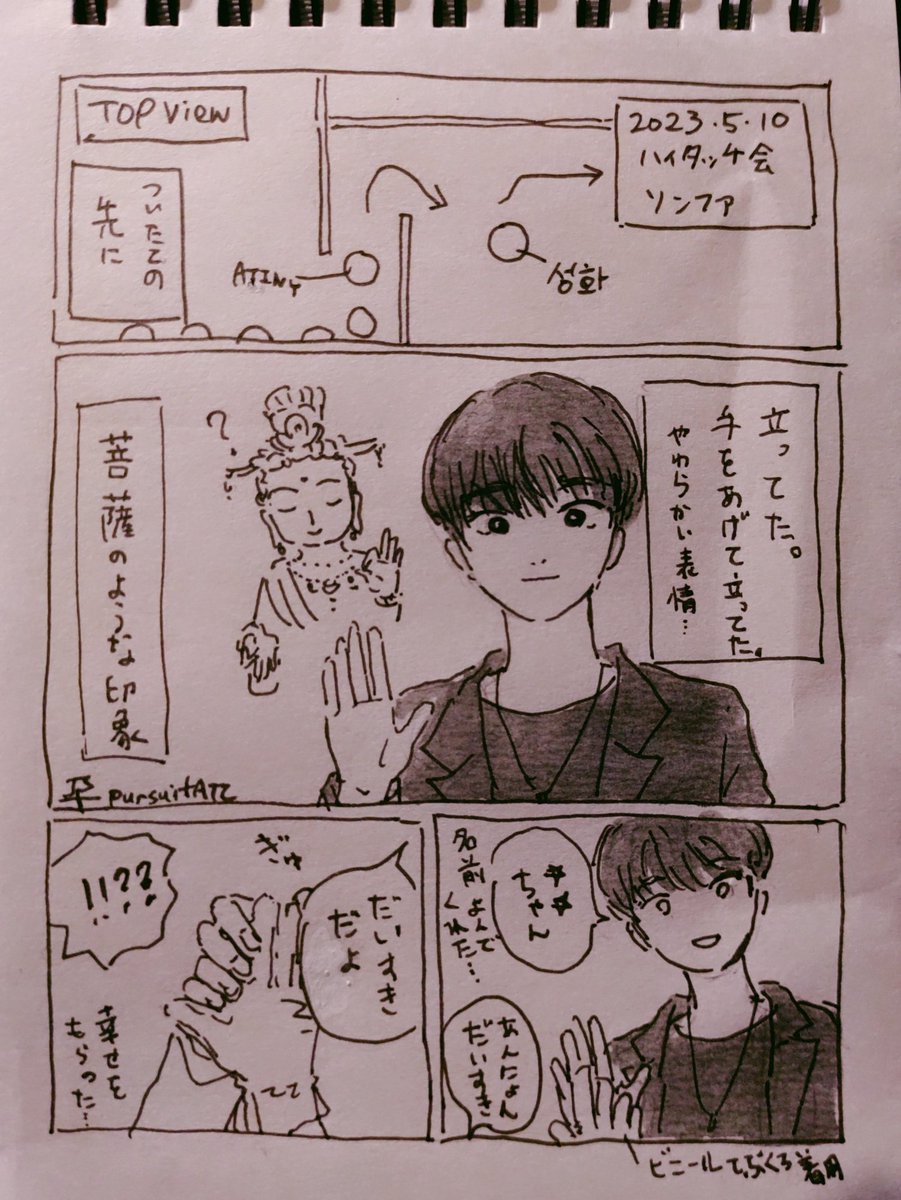 TOP View
2023.5.10
ハイタッチ会
ソンファ
ついたての
先に
ATINY
성화
立ってた。
手をあげて立ってた。
やわらかい表情…
?
菩薩のような印象
pursuitATZ
**
ちゃん
名前よんで
くれた…
あんにょん
だいすき
ビニールてぶくろ着用
だいすき
だよ
ぎゅ
!!??
幸せを
もらった…